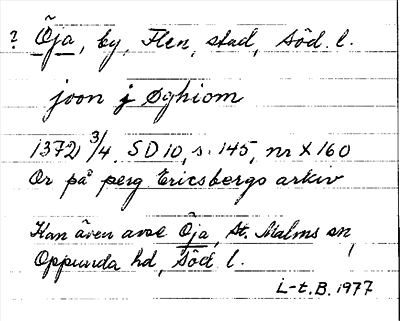 ? Öja, by, Flen, stad, Söd. l.
joon j Øghiom
1372 3/4. SD 10, s. 145, nr X 160
Or på perg Ericsbergs arkiv
Kan även avse Öja, St. Malms sn,
Oppunda hd, Söd l.
L-t. B. 1977